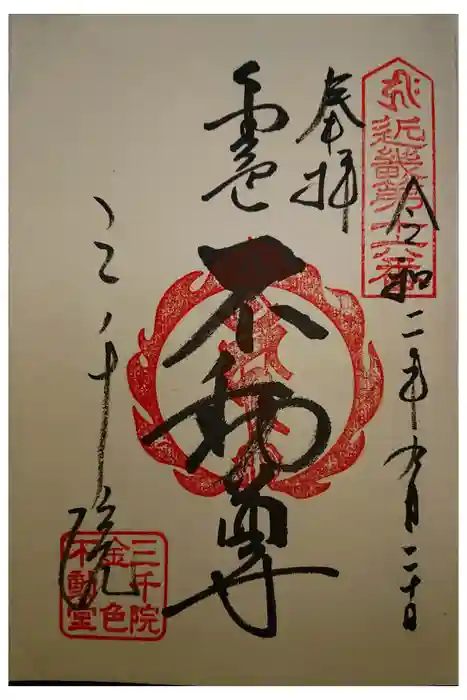 近畿第十六番
令和二年九月二十日
奉拝
金色
不動尊
三千院
三千院
金色
不動堂